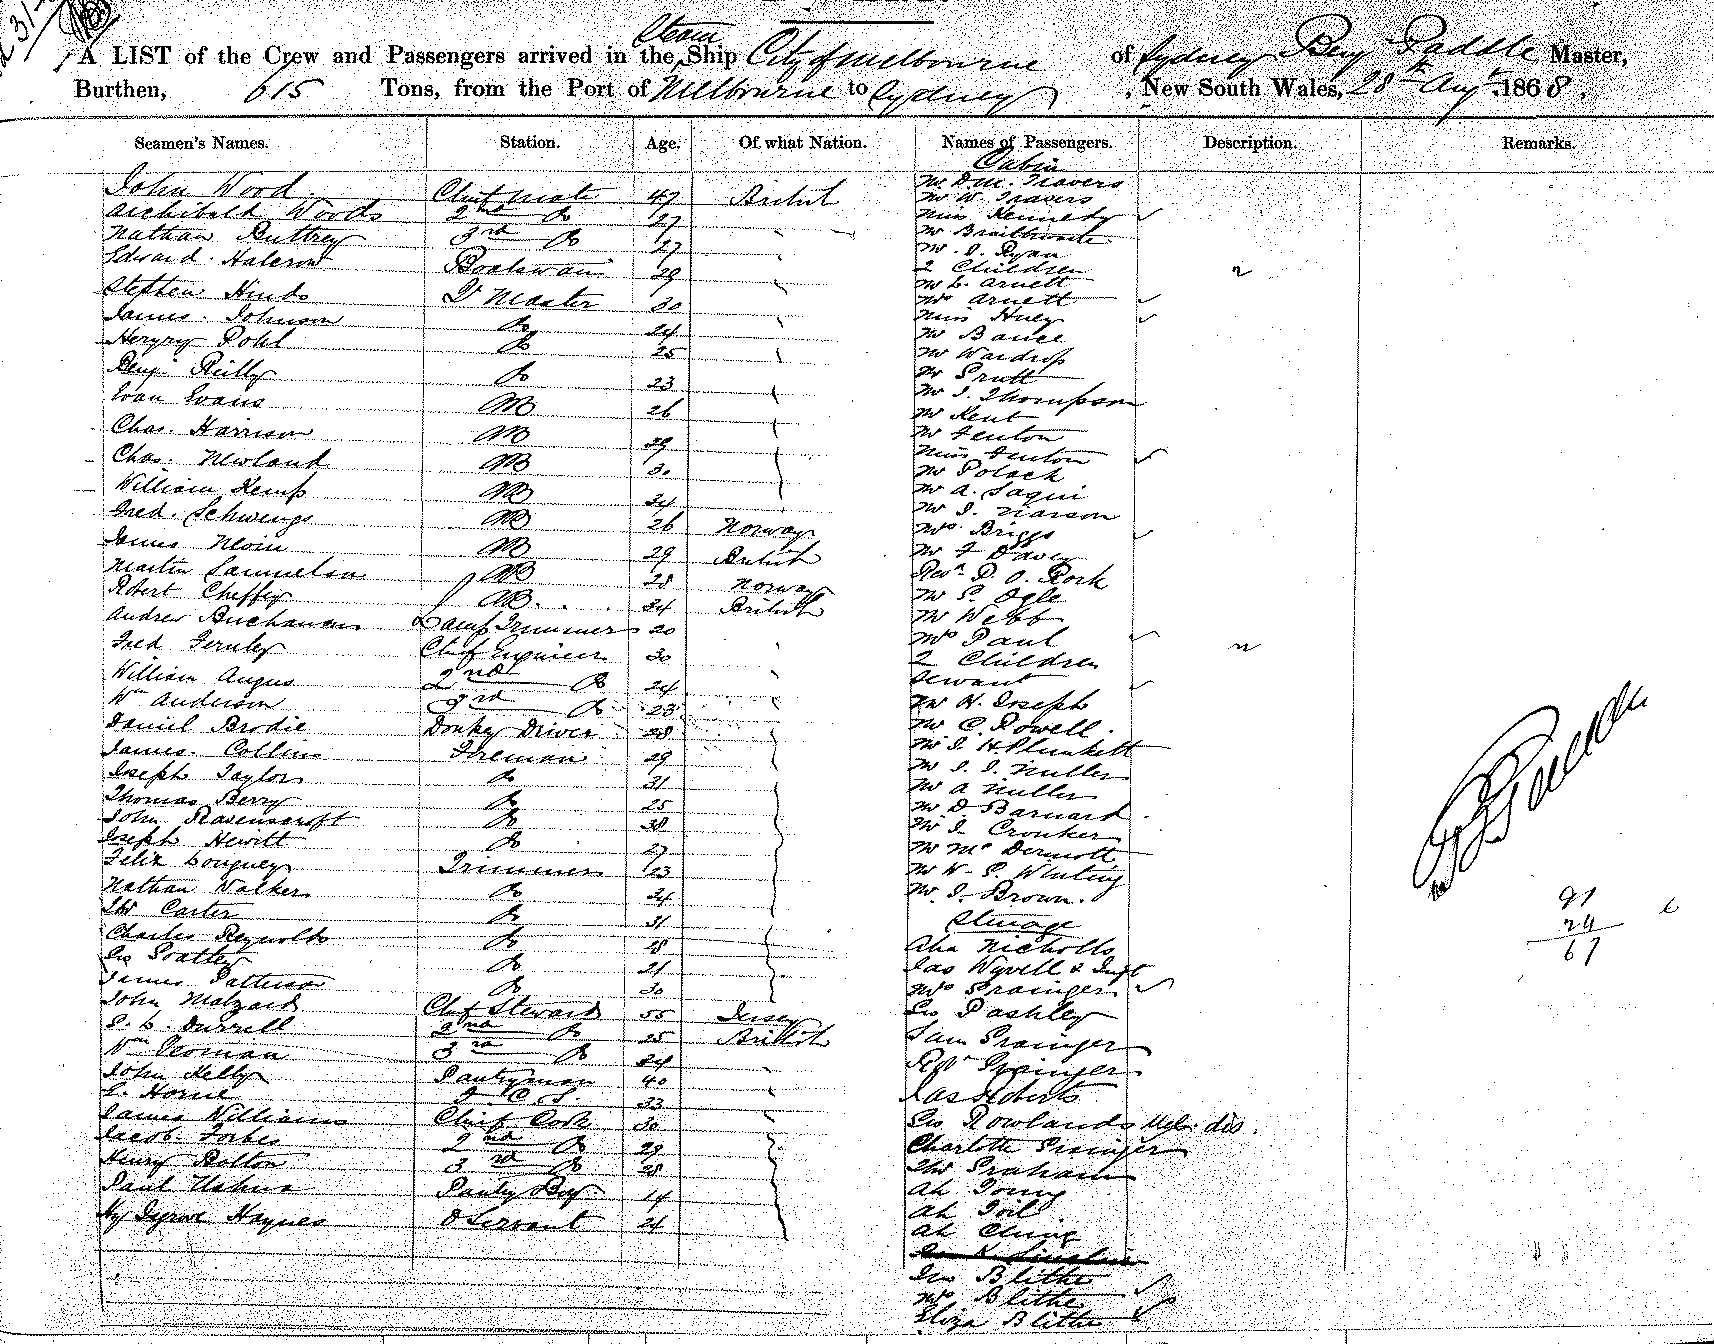 Steam
A LIST of the Crew and Passengers arrived in the Ship City of Melbourne of Sydney Benj Paddle Master,
Burthen, 615 Tons, from the Port of Melbourne to Sydney, New South Wales, 28th Augt 1868.
Seamen's Names. Station. Age. Of what Nation. Names of Passengers. Description. Remarks.
Cabin
John Wood Chief Mate 47 British Mr D. M. Travers
Mr W. Travers
Archibald Woods 2nd Do 27 Miss Kennedy
Nathan Buttrey 3rd Do 27 Mr Braithwaite
Mr J. Ryan
Edward Halcrow Boatswain 29 2 Children 2
Mr L. Arnett
Stephen Hinds Qr Master 30 Mrs Arnett
James Johnson Do 24 Miss Huey
Mr Bance
Do 25 Mr Wardrop
Benj Reilly Do 23 Mr Pratt
Evan Evans AB 26 Mr J. Thompson
Mr Kent
Chas. Harrison AB 29 Mr Fenton
Miss Fenton
Chas. Newland AB 30 Mr Polack
William Kemp AB 24 Mr A. Saqui
Mr J.
Fred. AB 26 Norway Mrs Briggs
James AB 29 British Mr F Davey
Martin Samuelson AB 28 Norway Revd P. O. Rork
Robert AB 24 British Mr S. Ogle
Andrew Buchanan Lamp Trimmer 20 Mr Webb
Fred Fernley Chief Engineer 30 Mrs Paul
2 Children 2
William Angus 2nd Do 24 Servant
Wm Anderson 3rd Do 23 Mr H. Joseph
Daniel Brodie Donkey Driver 28 Mr C. Rowell
James Collins Fireman 29 Mr J. H. Plunkett
Joseph Taylor Do 31 Mr J. J. Miller
Thomas Berry Do 25 Mr A Miller
John Ravenscroft Do 38 Mr D. Barnard
Joseph Hewitt Do 27 Mr J. Crouker
Mr McDermott
Felix Trimmer 23 Mr W. S. Whiting
Nathan Walker Do 24 Mr J. Brown.
Thos Carter Do 31 Steerage
Charles Reynolds Do 28 Nicholls
Geo Do 21 Jas Wyvell & Inft
James Patterson Do 30 Mrs Grainger
John Malzard Chief Steward 55 Jersey Geo Pashley
Durrell 2nd Do 25 British Sam Grainger
Wm Yeoman 3rd Do 24 Robt Grainger
John Kelly Pantryman 40
E. Horne 33 Jas Roberts
James Williams Chief Cook 30 Geo Rowlands
Jacob Forbes 2nd Do 29 Charlotte Grainger
Henry Bolton 3rd Do 28 Thos Graham
Paul Pantry Boy 14 Ah Toung
Haynes O Servant 24 Ah Foil
Ah Ching
Blithe
Mrs Blithe
Eliza Blithe
91
24
67